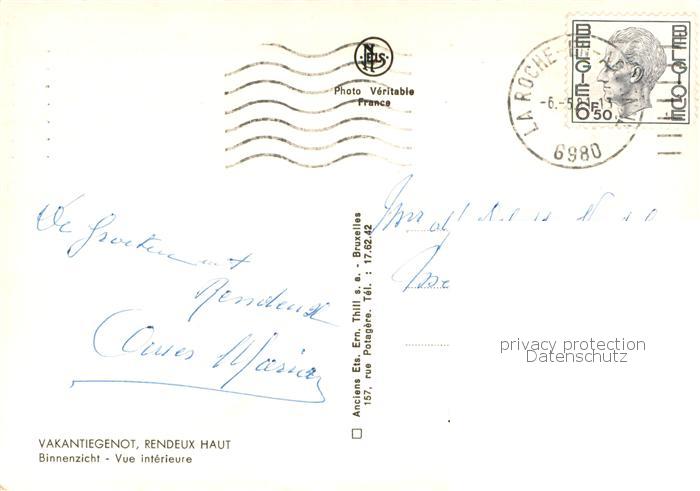 NELS
Photo Véritable
France
LA ROCHE-EN-
-6.-5.8
6980
BELGIE
BELGIQUE
6F50
De Groeten uit
Rendeux
VAKANTIEGENOT, RENDEUX HAUT
Binnenzicht - Vue intérieure
Anciens Ets. Ern. Thill s. a. - Bruxelles
157, rue Potagère. Tél. : 17.62.42
privacy protection
Datenschutz